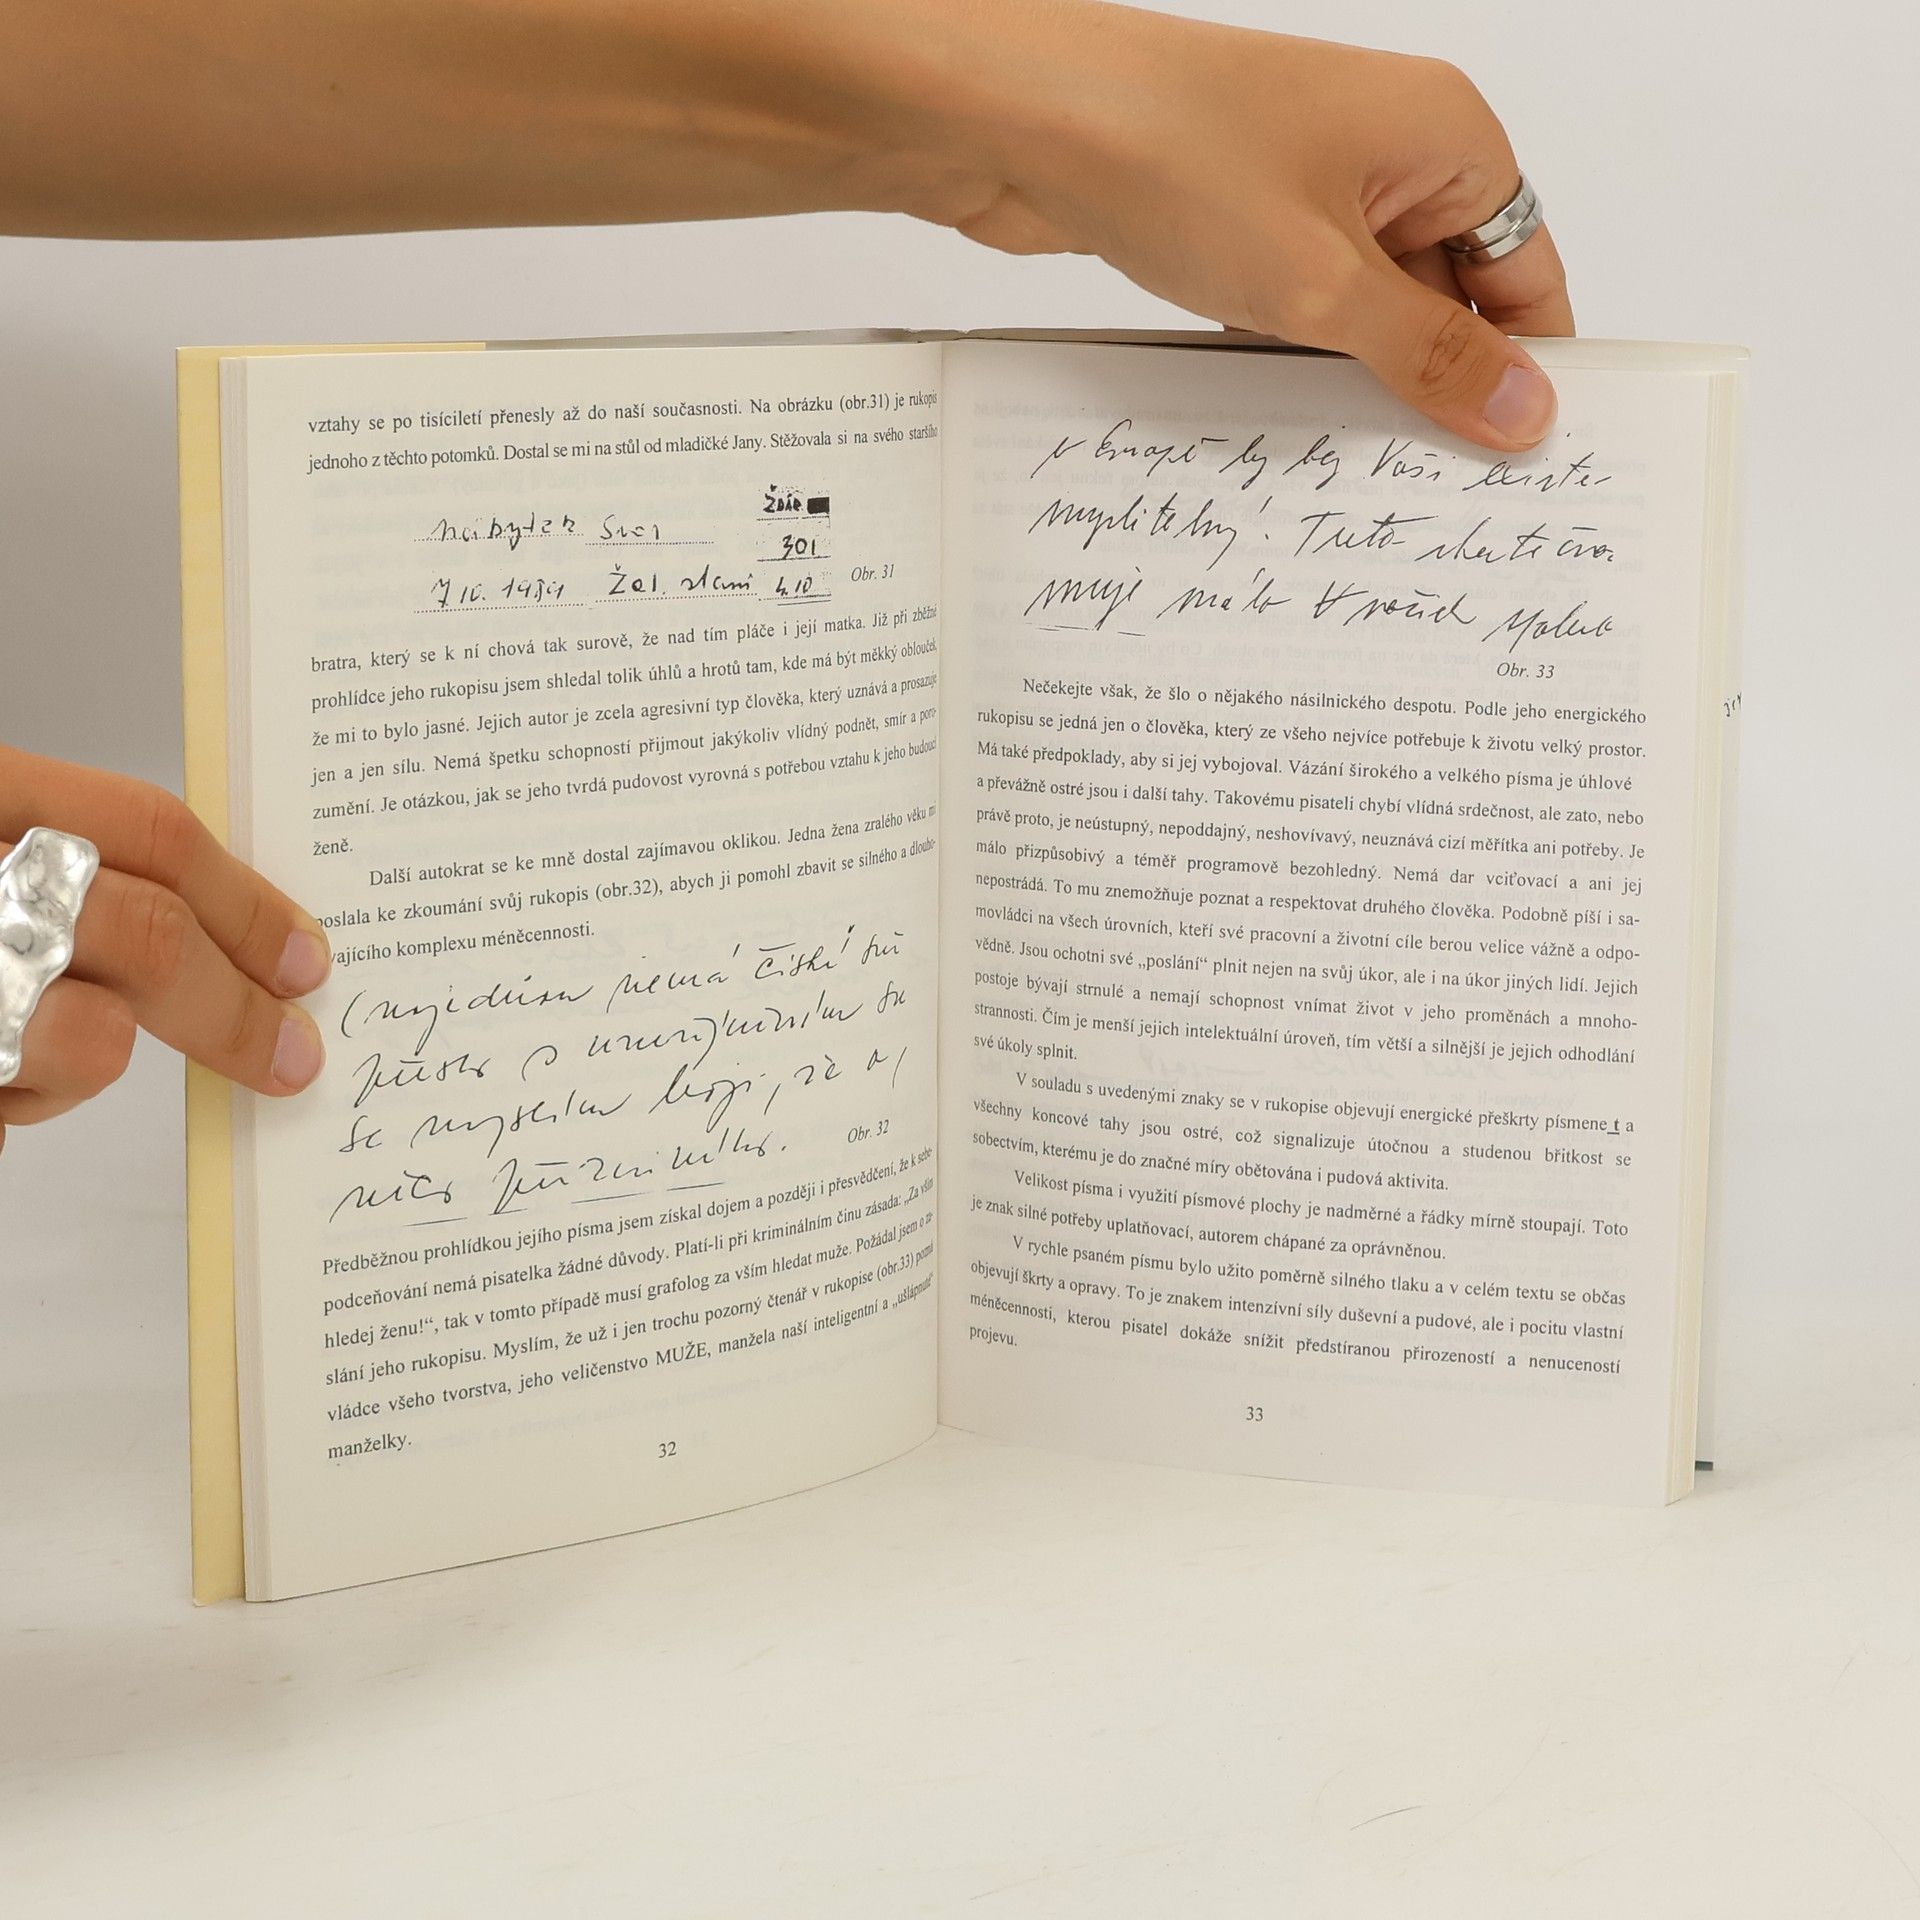 vztahy se po tisíciletí přenesly až do naší současnosti. Na obrázku (obr.31) je rukopis
jednoho z těchto potomků. Dostal se mi na stůl od mladičké Jany. Stěžovala si na svého staršího
Žďár
301
7 10. 1989 Žel. stani 4.10
Obr. 31
bratra, který se k ní chová tak surově, že nad tím pláče i její matka. Již při zběžné
prohlídce jeho rukopisu jsem shledal tolik úhlů a hrotů tam, kde má být měkký oblouček,
že mi to bylo jasné. Jejich autor je zcela agresivní typ člověka, který uznává a prosazuje
jen a jen sílu. Nemá špetku schopností přijmout jakýkoliv vlídný podnět, smír a poro-
zumění. Je otázkou, jak se jeho tvrdá pudovost vyrovná s potřebou vztahu k jeho budoucí
ženě.
Další autokrat se ke mně dostal zajímavou oklikou. Jedna žena zralého věku mi
poslala ke zkoumání svůj rukopis (obr.32), abych ji pomohl zbavit se silného a dlouho-
vajícího komplexu méněcennosti.
nemá
se myslím bojí, že
Obr. 32
Předběžnou prohlídkou jejího písma jsem získal dojem a později i přesvědčení, že k sebe-
podceňování nemá pisatelka žádné důvody. Platí-li při kriminálním činu zásada: „Za vším
hledej ženu!“, tak v tomto případě musí grafolog za vším hledat muže. Požádal jsem o za-
slání jeho rukopisu. Myslím, že už i jen trochu pozorný čtenář v rukopise (obr.33) pozná
vládce všeho tvorstva, jeho veličenstvo MUŽE, manžela naší inteligentní a „ušlápnuté“
manželky.
32
v Evropě by byl Vaši existe-
myslitelný! Tuto
muje málo
Obr. 33
Nečekejte však, že šlo o nějakého násilnického despotu. Podle jeho energického
rukopisu se jedná jen o člověka, který ze všeho nejvíce potřebuje k životu velký prostor.
Má také předpoklady, aby si jej vybojoval. Vázání širokého a velkého písma je úhlové
a převážně ostré jsou i další tahy. Takovému pisateli chybí vlídná srdečnost, ale zato, nebo
právě proto, je neústupný, nepoddajný, neshovívavý, neuznává cizí měřítka ani potřeby. Je
málo přizpůsobivý a téměř programově bezohledný. Nemá dar vciťovací a ani jej
nepostrádá. To mu znemožňuje poznat a respektovat druhého člověka. Podobně píší i sa-
movládci na všech úrovních, kteří své pracovní a životní cíle berou velice vážně a odpo-
vědně. Jsou ochotni své „poslání“ plnit nejen na svůj úkor, ale i na úkor jiných lidí. Jejich
postoje bývají strnulé a nemají schopnost vnímat život v jeho proměnách a mnoho-
strannosti. Čím je menší jejich intelektuální úroveň, tím větší a silnější je jejich odhodlání
své úkoly splnit.
V souladu s uvedenými znaky se v rukopise objevují energické přeškrty písmene t a
všechny koncové tahy jsou ostré, což signalizuje útočnou a studenou břitkost se
sobectvím, kterému je do značné míry obětována i pudová aktivita.
Velikost písma i využití písmové plochy je nadměrné a řádky mírně stoupají. Toto
je znak silné potřeby uplatňovací, autorem chápané za oprávněnou.
V rychle psaném písmu bylo užito poměrně silného tlaku a v celém textu se občas
objevují škrty a opravy. To je znakem intenzívní síly duševní a pudové, ale i pocitu vlastní
méněcennosti, kterou pisatel dokáže snížit předstíranou přirozeností a nenuceností
projevu.
33